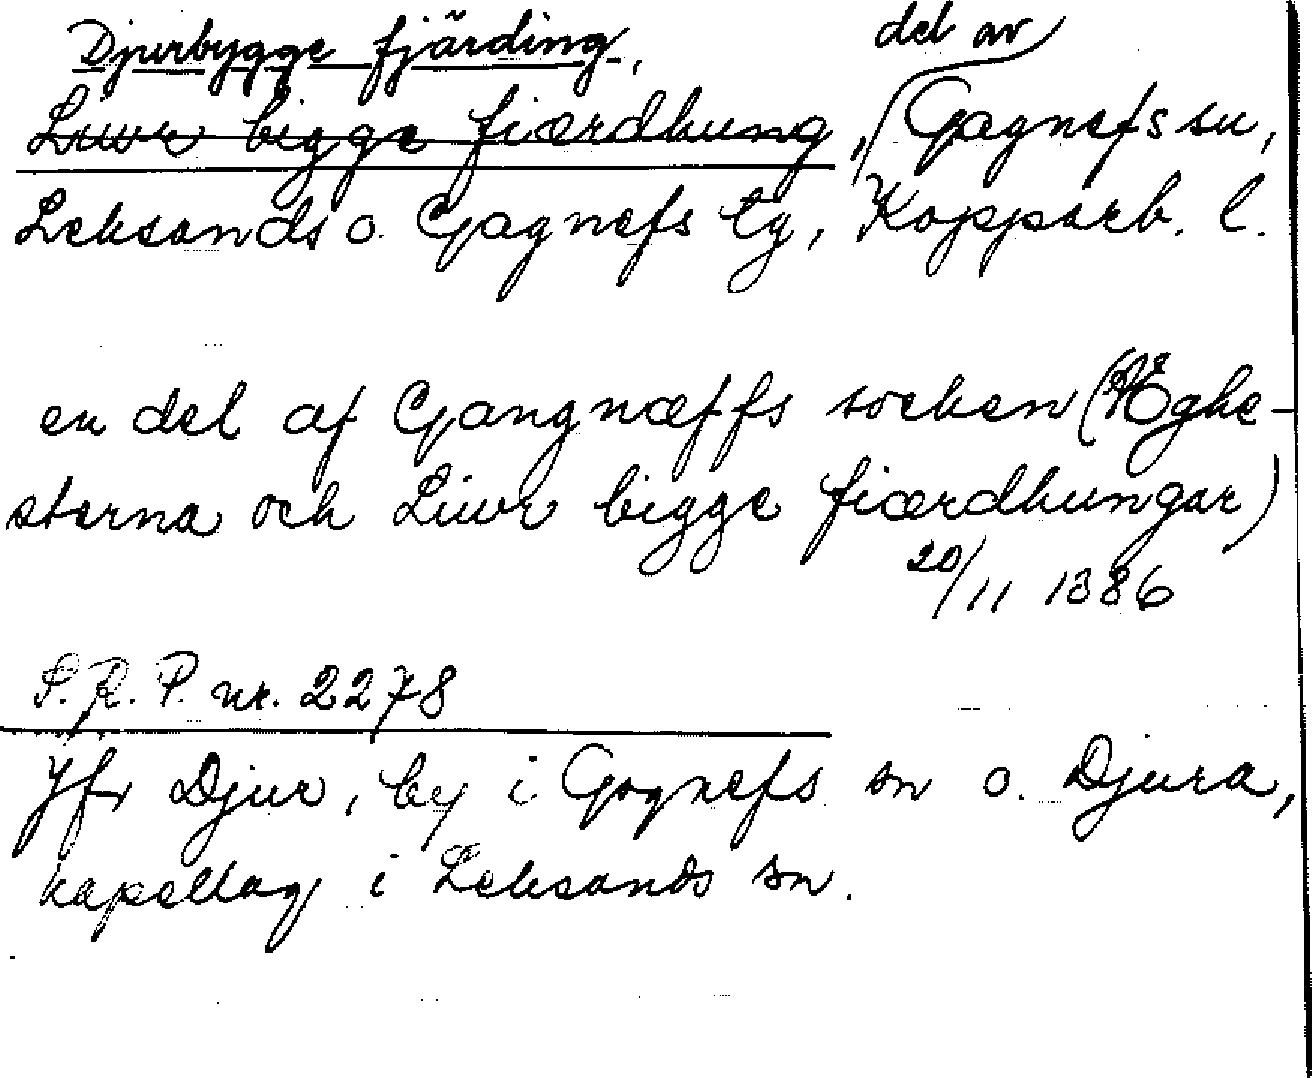 Djurbygge fjärding, del av
Liwr bigge fiærdhung, Gagnefs sn,
Leksands o. Gagnefs tg, Kopparb. l.
en del af Gangnæffs socken (Æghe-
sterna och Liwr bigge fiærdhungar)
20/11 1386
S.R.P. nr. 2278
Jfr Djur, by i Gagnefs sn o. Djura,
kapellag i Leksands sn.